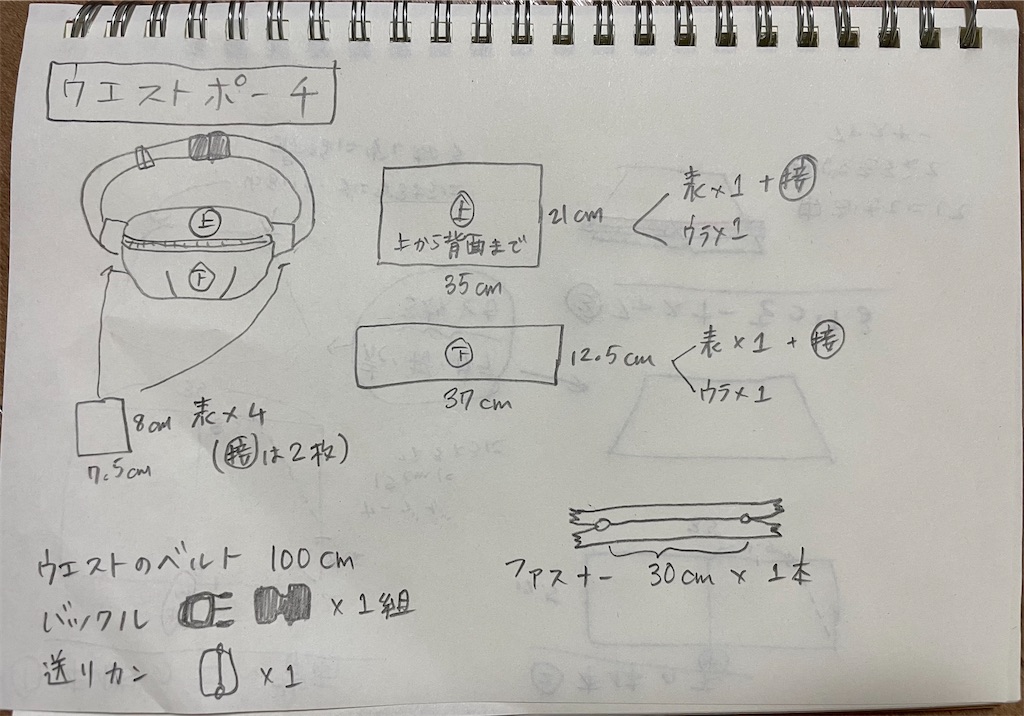 ウエストポーチ
上
下
上
上から背面まで
21cm
35cm
表×1+接
ウラ×1
下
12.5cm
37cm
表×1+接
ウラ×1
8cm
7.5cm
表×4
(接は2枚)
ファスナー 30cm×1本
ウエストのベルト 100cm
バックル ×1組
送リカン ×1